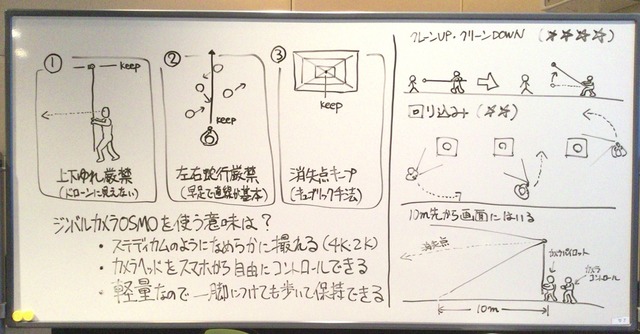 ①
keep
上下ゆれ厳禁
(ドローンに見えない)
②
keep
左右蛇行厳禁
(早足で直線が基本)
③
keep
消失点キープ
(キュブリック手法)
ジンバルカメラOSMOを使う意味は？
・ステディカムのようになめらかに撮れる(4K・2K)
・カメラヘッドをスマホから自由にコントロールできる
・軽量なので一脚につけても歩いて保持できる
クレーンUP・クレーンDOWN (☆☆☆☆)
回り込み (☆☆)
10m先から画面にはいる
消失点
カメラパイロット
カメラ
コントロール
10m